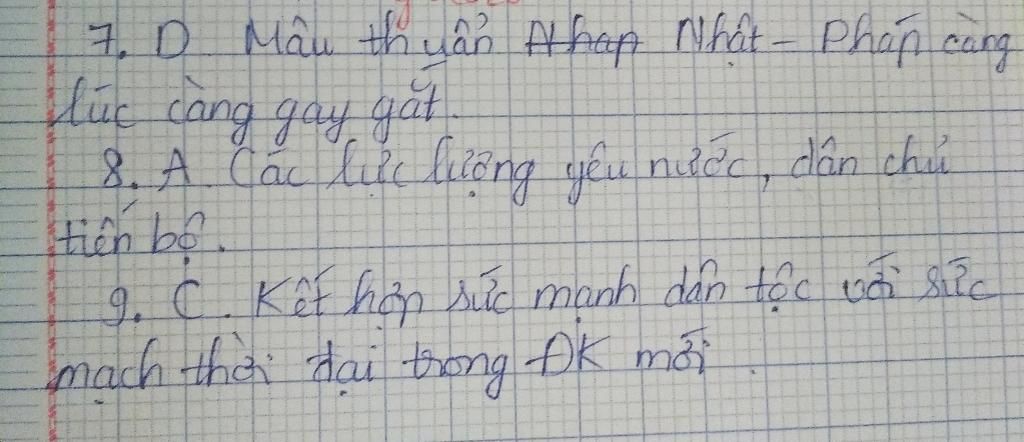 7. D Mâu thuẫn Nhật - Pháp càng
lúc càng gay gắt.
8. A. Các lực lượng yêu nước, dân chủ
tiến bộ.
9. C. Kết hợp sức mạnh dân tộc với sức
mạch thời đại trong ĐK mới.